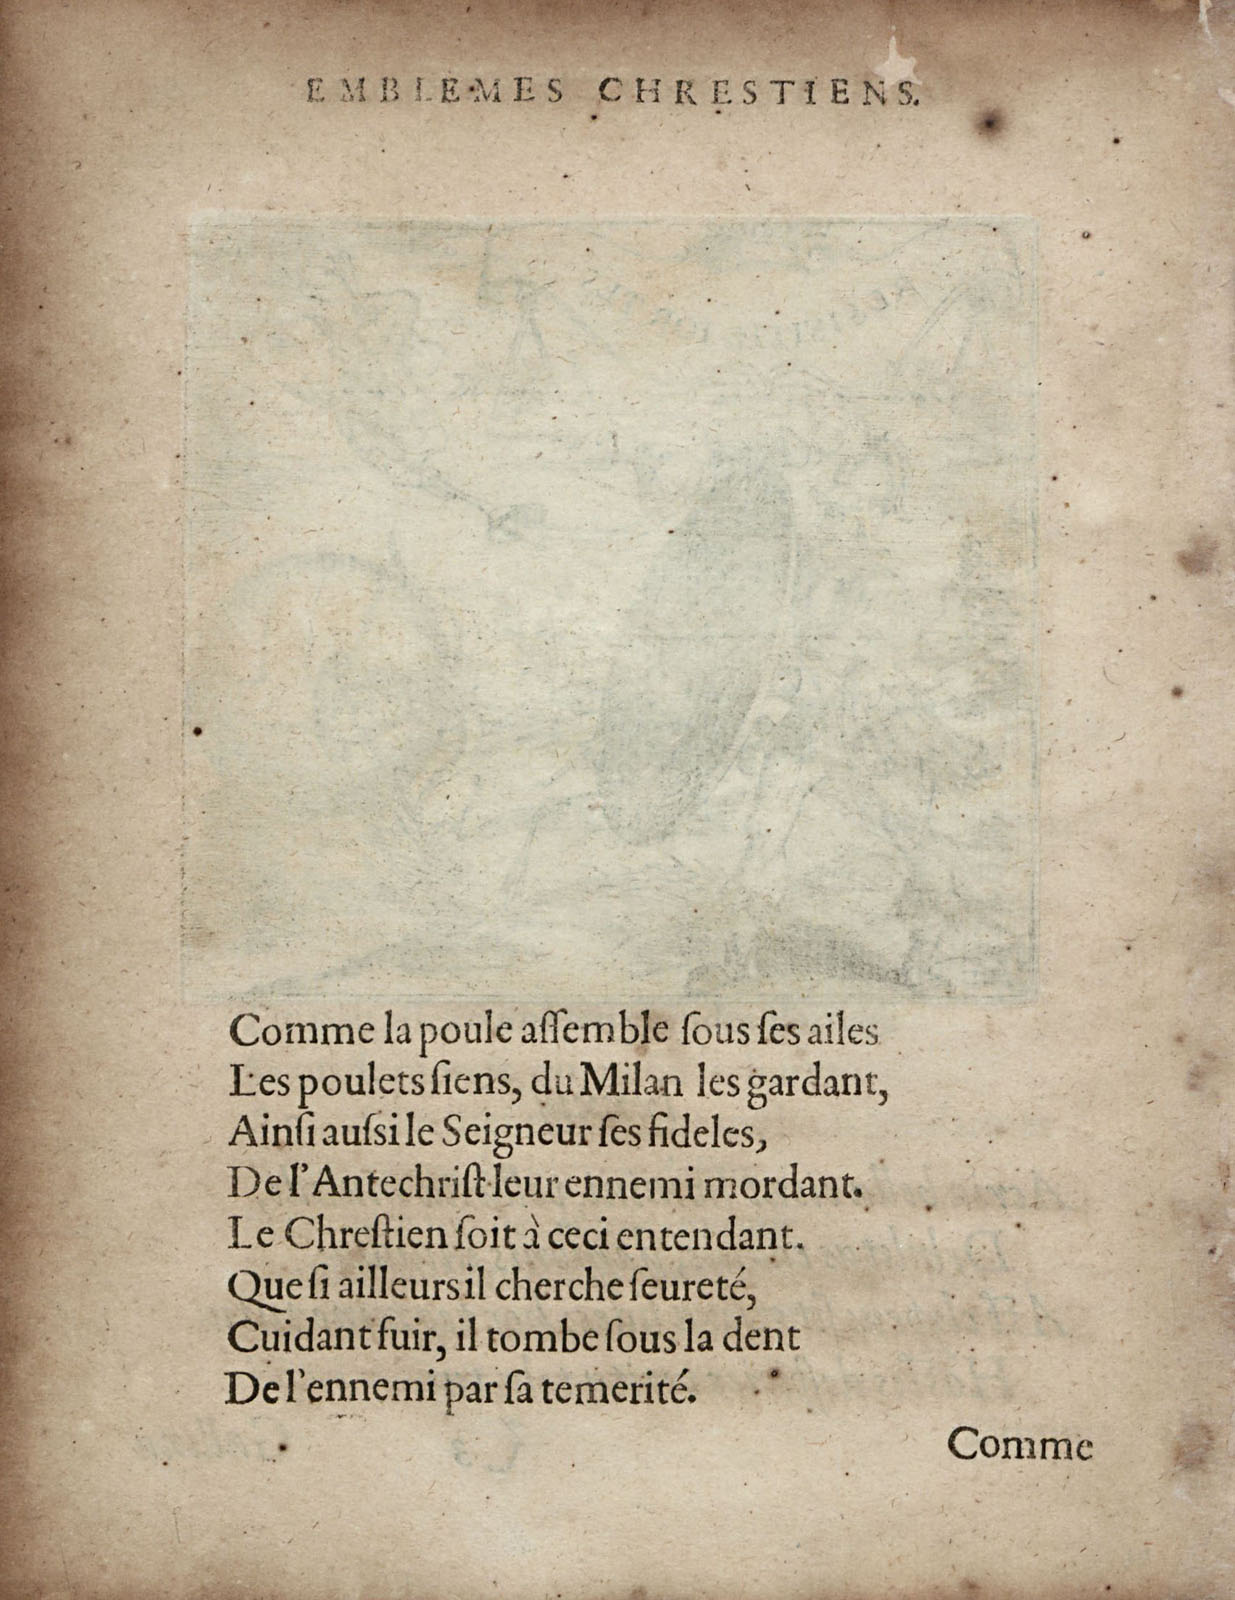 EMBLEMES CHRESTIENS.
Comme la poule aſſemble ſous ſes ailes
Les poulets ſiens, du Milan les gardant,
Ainſi auſsi le Seigneur ſes fideles,
De l'Antechriſt leur ennemi mordant.
Le Chreſtien ſoit à ceci entendant.
Que ſi ailleurs il cherche ſeureté,
Cuidant fuir, il tombe ſous la dent
De l'ennemi par ſa temerité.
Comme